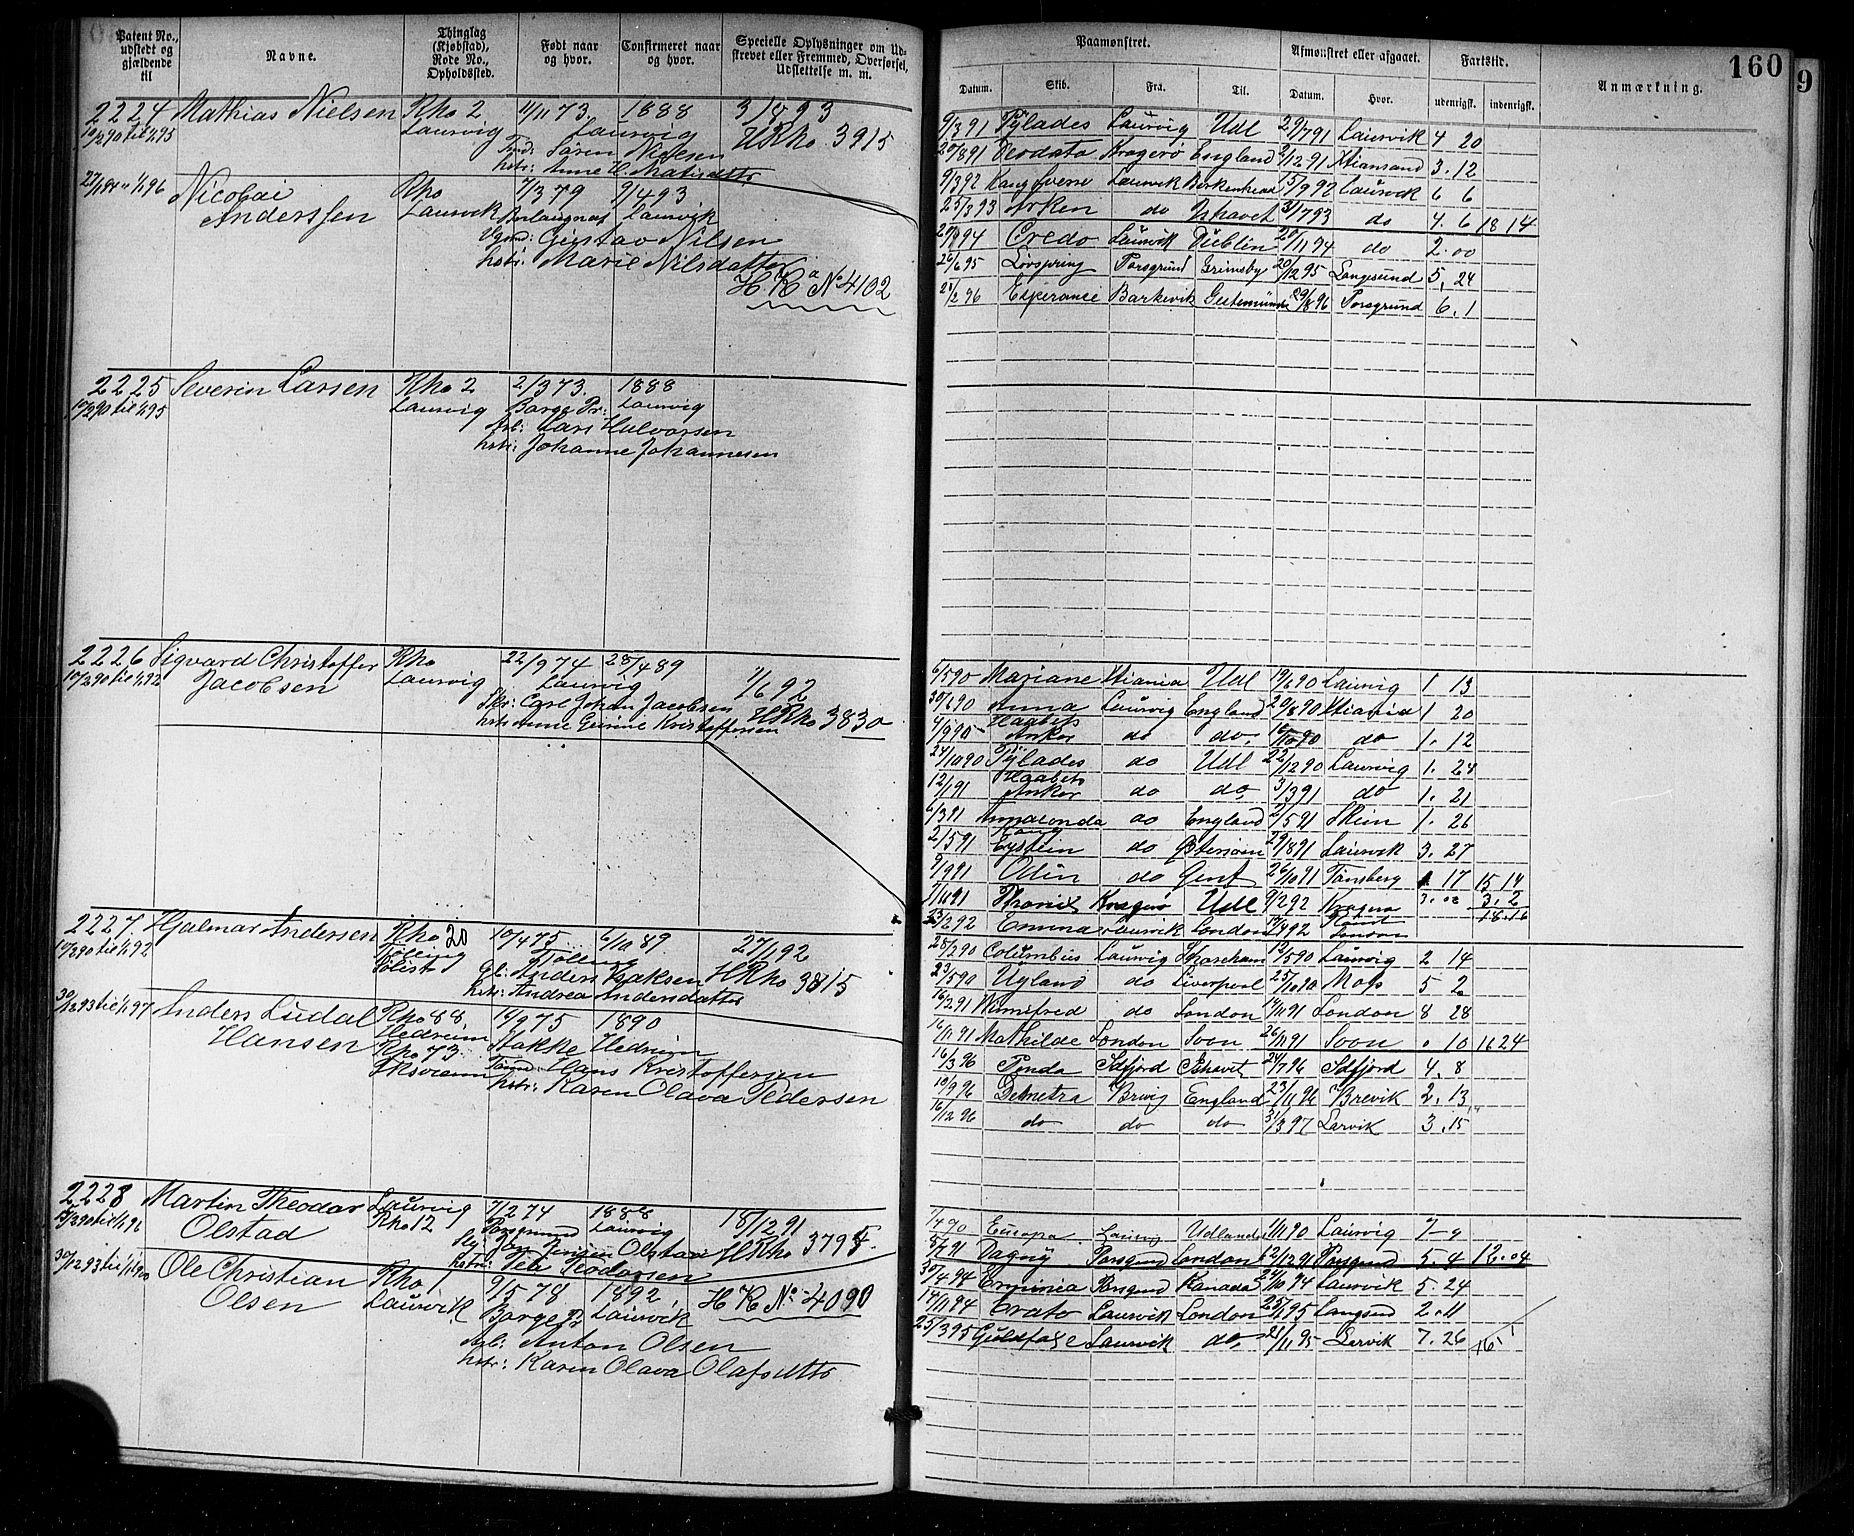 Patent No., udstedt og gjældende til
Navne.
Thinglag (Kjøbstad), Rode No., Opholdssted.
Født naar og hvor.
Confirmeret naar og hvor.
Specielle Oplysninger om Udskrevet eller Fremmed, Overførsel, Udslettelse m. m.
2224 Mathias Nielsen Rho 2 11/11 73. 1888 3/8 93
10/2 90 til 1/1 95 Laurvig Laurvig HRho 3915
Søren Nielsen
hstr: Anne H.
27/1 94 " 1/1 96 Nicolai Rho 7/3 79 9/4 93
Anderssen Laurvik Laurvik
Gustav Nilsen
hstr: Marie Nilsdatter
H R a No 4102
2225 Severin Larsen Rho 2 2/3 73. 1888
10/2 90 til 1/1 95 Laurvig Barge Pr: Laurvig
Arb: Lars Halvorsen
hstr: Johanne Johannesen
2226 Sigvard Christoffer Rho 22/9 74 28/4 89
10/2 90 til 1/1 92 Jacobsen Laurvig Laurvig 7/6 92
Skr: Carl Johan Jacobsen HRho 3830
hstr: Anne Gurine Kristoffersen
2227. Hjalmar Andersen Rho 20 10/4 75 6/10 89 27/1 92
10/2 90 til 1/1 92 Tjølling Tjølling
Anders Isaksen HRho 3815
hstr: Andrea Andersdatter
30/12 93 til 1/1 97 Anders Ludal Rho 88 19/9 75 1890
Hansen Hedrum Stokke Hedrum
Rho 73 Hans Kristoffersen
hstr: Karen Olava Pedersen
2228 Martin Theodor Laurvig 7/2 74 1888 18/12 91
Olstad Rho 12 Porsgrund Laurvig HRho 3795.
Jensen Olstad
30/12 93 til 1/1 1900 Ole Christian Rho 1 9/5 78 1892 H R No 4090
Olsen Laurvik Barge P Laurvik
Arb: Anton Olsen
hstr: Karen Olava Olafsdttr
160
9
Paamønstret.
Afmønstret eller afgaaet.
Fartstid.
Anmærkning.
Datum. Skib. Fra. Til. Datum. Hvor. udenrigsk. indenrigsk.
9/3 91 Pylades Laurvig Udl 29/7 91 Laurvik 4 20
20/8 91 Deodata Kragerø England 2/12 91 Xtiansand 3. 12
9/3 92 Kong Sverre Laurvik Birkenhead 15/9 92 Laurvik 6 6
25/3 93 Arken do Ishavet 31/7 93 do 4. 6 18 14
20/9 94 Credo Laurvik Dublin 20/11 94 do 2.00
26/6 95 Løvspring Porsgrund Grimsby 20/12 95 Langesund 5, 24
28/2 96 Esperance Barkevik Gestemünde 29/8 96 Porsgrund 6. 1
6/5 90 Mariane Xtiania Udl 19/6 90 Laurvig 1 13
30/6 90 Anna Laurvig England 20/8 90 Xtiania 1 20
4/9 90 Haabets Anker do do. 16/10 90 do 1. 12
27/10 90 Pylades do Udl 22/12 90 Laurvig 1. 24
12/1 91 Haabets Anker do do. 3/3 91 do 1. 21
6/3 91 Annaconda do England 2/5 91 Skien 1. 26
2/5 91 Kong Eystein do Østersøen 29/8 91 Laurvik 3. 27
9/9 91 Odin do Gent 26/10 91 Tønsberg 1 17 15 14
7/11 91 Kragerø Udl 9/2 92 Kragerø 3.02 3.2
23/2 92 Emma Laurvik London 4 92 18.16
28/2 90 Columbus Laurvig Shoreham 12/5 90 Laurvig 2 14
23/5 90 Uyland do Liverpool 25/10 90 Moss 5 2
16/2 91 Winnifred do London 14/11 91 London 8 28
16/11 91 Mathilde London Soon 26/11 91 Soon 0 10 16 24
16/3 96 Tonda Idfjord Ishavet 24/7 96 Idfjord 4. 8
10/9 96 Demetra Brevig England 23/11 96 Brevik 2. 13
16/12 96 do do do 31/3 97 Larvik 3. 15
1/4 90 Europa Laurvig Udlandet 10/11 90 Laurvig 7-9
5/7 91 Dagny Porsgund London 12/12 91 Porsgund 5. 4 12.04
30/4 94 Erminia Porsgund Kanada 24/10 94 Laurvik 5. 24
14/11 94 Erato Laurvik London 25/1 95 Langsund 2.11
25/3 95 Guldfaxe Laurvik do. 21/11 95 Larvik 7. 26